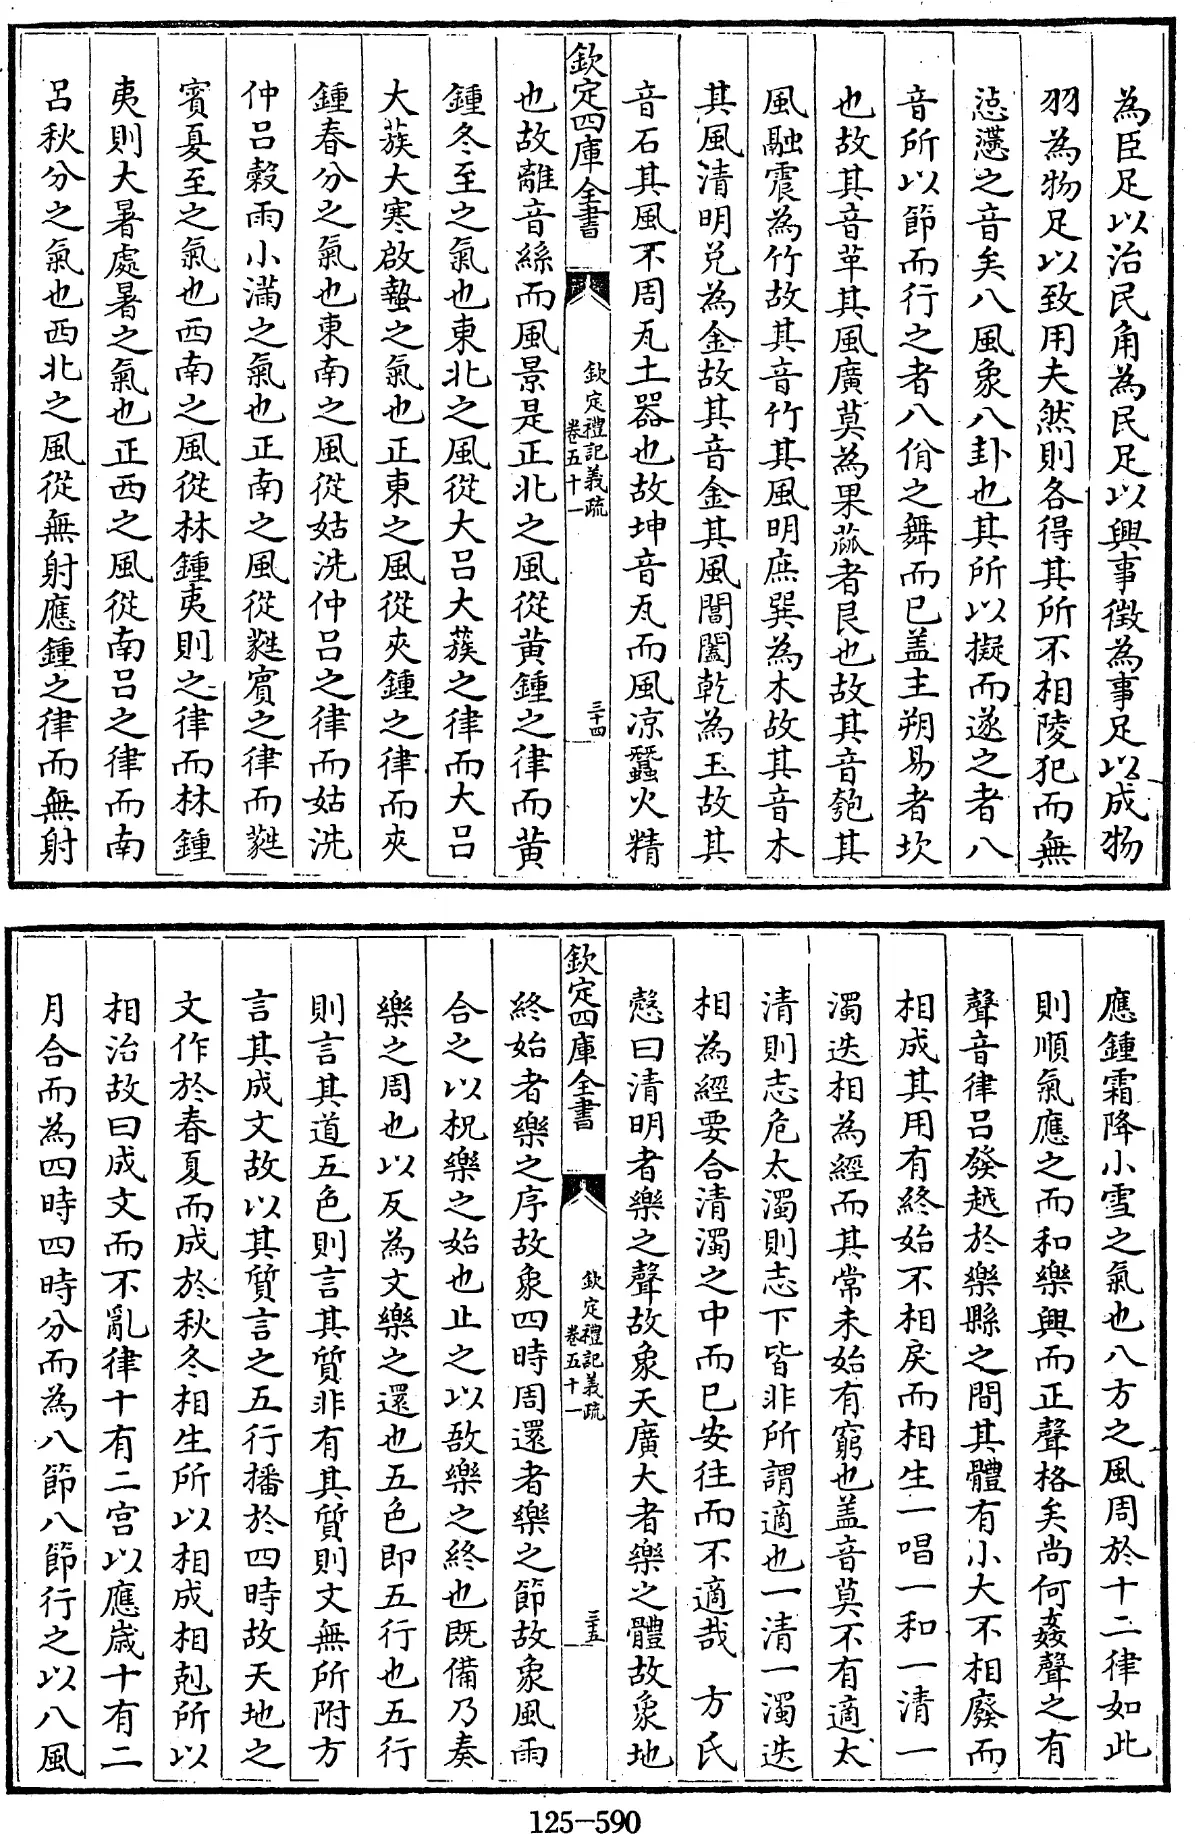 為臣足以治民角為民足以興事徴為事足以成物
羽為物足以致用夫然則各得其所不相陵犯而無
惉懘之音矣八風象八卦也其所以擬而遂之者八
音所以節而行之者八佾之舞而已盖主朔易者坎
也故其音革其風廣莫為果蓏者艮也故其音匏其
風融震為竹故其音竹其風明庶巽為木故其音木
其風清明兑為金故其音金其風閶闔乾為玉故其
音石其風不周瓦土器也故坤音瓦而風凉蠶火精
欽定四庫全書
欽定禮記義疏
卷五十一
三十四
也故離音絲而風景是正北之風從黄鍾之律而黄
鍾冬至之氣也東北之風從大吕大蔟之律而大吕
大蔟大寒啟蟄之氣也正東之風從夾鍾之律而夾
鍾春分之氣也東南之風從姑洗仲吕之律而姑洗
仲吕穀雨小滿之氣也正南之風從蕤賓之律而蕤
賓夏至之氣也西南之風從林鍾夷則之律而林鍾
夷則大暑處暑之氣也正西之風從南吕之律而南
吕秋分之氣也西北之風從無射應鍾之律而無射
應鍾霜降小雪之氣也八方之風周於十二律如此
則順氣應之而和樂興而正聲格矣尚何姦聲之有
聲音律吕發越於樂縣之間其體有小大不相廢而
相成其用有終始不相戾而相生一唱一和一清一
濁迭相為經而其常未始有窮也盖音莫不有適太
清則志危太濁則志下皆非所謂適也一清一濁迭
相為經要合清濁之中而已安往而不適哉　方氏
慤曰清明者樂之聲故象天廣大者樂之體故象地
欽定四庫全書
欽定禮記義疏
卷五十一
三十五
終始者樂之序故象四時周還者樂之節故象風雨
合之以柷樂之始也止之以敔樂之終也既備乃奏
樂之周也以反為文樂之還也五色即五行也五行
則言其道五色則言其質非有其質則文無所附方
言其成文故以其質言之五行播於四時故天地之
文作於春夏而成於秋冬相生所以相成相剋所以
相治故曰成文而不亂律十有二宫以應歳十有二
月合而為四時四時分而為八節八節行之以八風
125-590